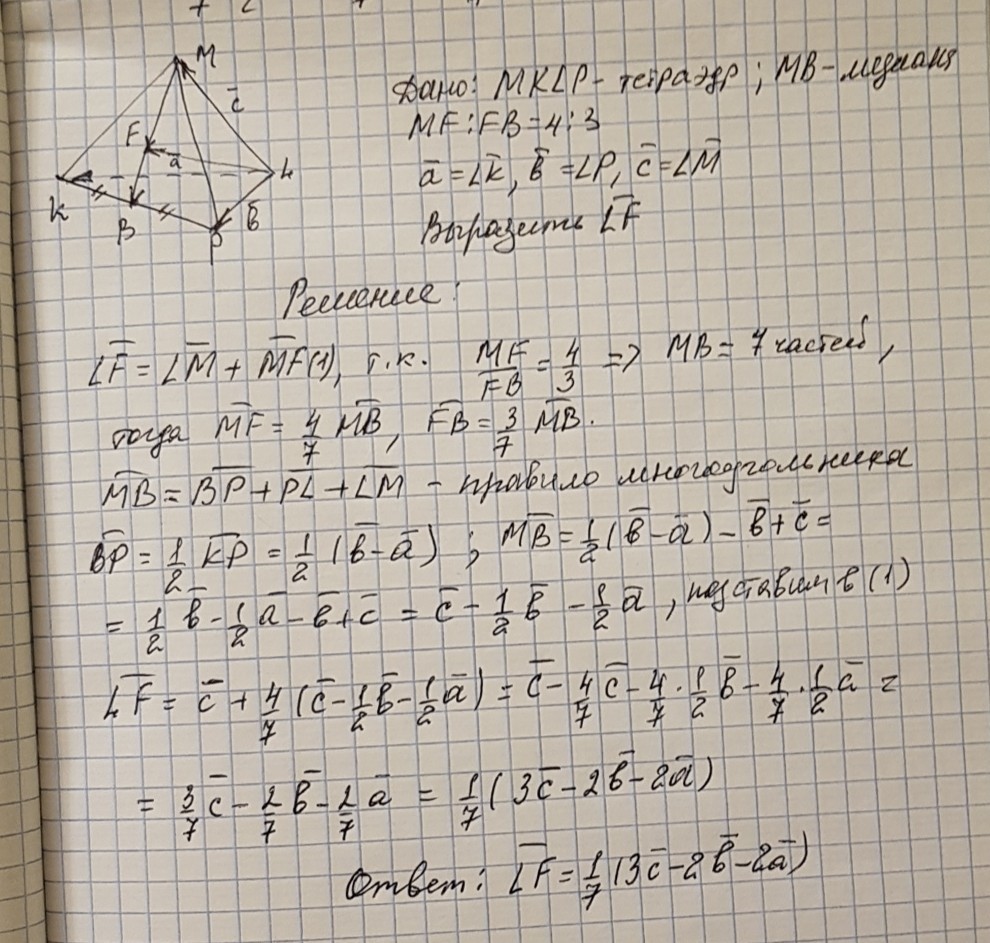 M
c̄
F
ā
K
L
B
P
b̄
Дано: MKLP - тетраэдр; MB - медиана
MF : FB = 4 : 3
ā = L̄K̄, b̄ = L̄P̄, c̄ = L̄M̄
Выразить L̄F̄
Решение:
L̄F̄ = L̄M̄ + M̄F̄ (1), т.к. MF/FB = 4/3 => MB = 7 частей,
тогда M̄F̄ = 4/7 M̄B̄, F̄B̄ = 3/7 M̄B̄.
M̄B̄ = B̄P̄ + P̄L̄ + L̄M̄ - правило многоугольника
B̄P̄ = 1/2 K̄P̄ = 1/2 (b̄ - ā) ; M̄B̄ = 1/2 (b̄ - ā) - b̄ + c̄ =
= 1/2 b̄ - 1/2 ā - b̄ + c̄ = c̄ - 1/2 b̄ - 1/2 ā , подставим в (1)
L̄F̄ = c̄ + 4/7 (c̄ - 1/2 b̄ - 1/2 ā) = c̄ - 4/7 c̄ - 4/7 · 1/2 b̄ - 4/7 · 1/2 ā =
= 3/7 c̄ - 2/7 b̄ - 2/7 ā = 1/7 (3c̄ - 2b̄ - 2ā)
Ответ: L̄F̄ = 1/7 (3c̄ - 2b̄ - 2ā)